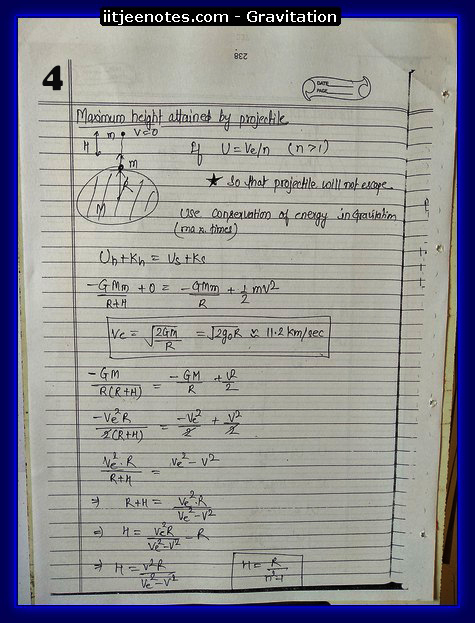 iitjeenotes.com - Gravitation
238
4
DATE
PAGE
Maximum height attained by projectile
m V=0
H
m
R
M
If U = Ve/n (n>1)
★ So that projectile will not escape.
Use conservation of energy in Gravitation
(max. times)
Uh + Kh = Us + Ks
-GMm/(R+H) + 0 = -GMm/R + 1/2 mv²
Ve = √(2GM/R) = √2g₀R ≈ 11.2 km/sec
-GM/R(R+H) = -GM/R + v²/2
-Ve²R/2(R+H) = -Ve²/2 + V²/2
Ve²·R/(R+H) = Ve² - V²
⇒ R+H = Ve²·R/(Ve²-V²)
⇒ H = Ve²R/(Ve²-V²) - R
⇒ H = V²R/(Ve²-V²)
H = R/(n²-1)